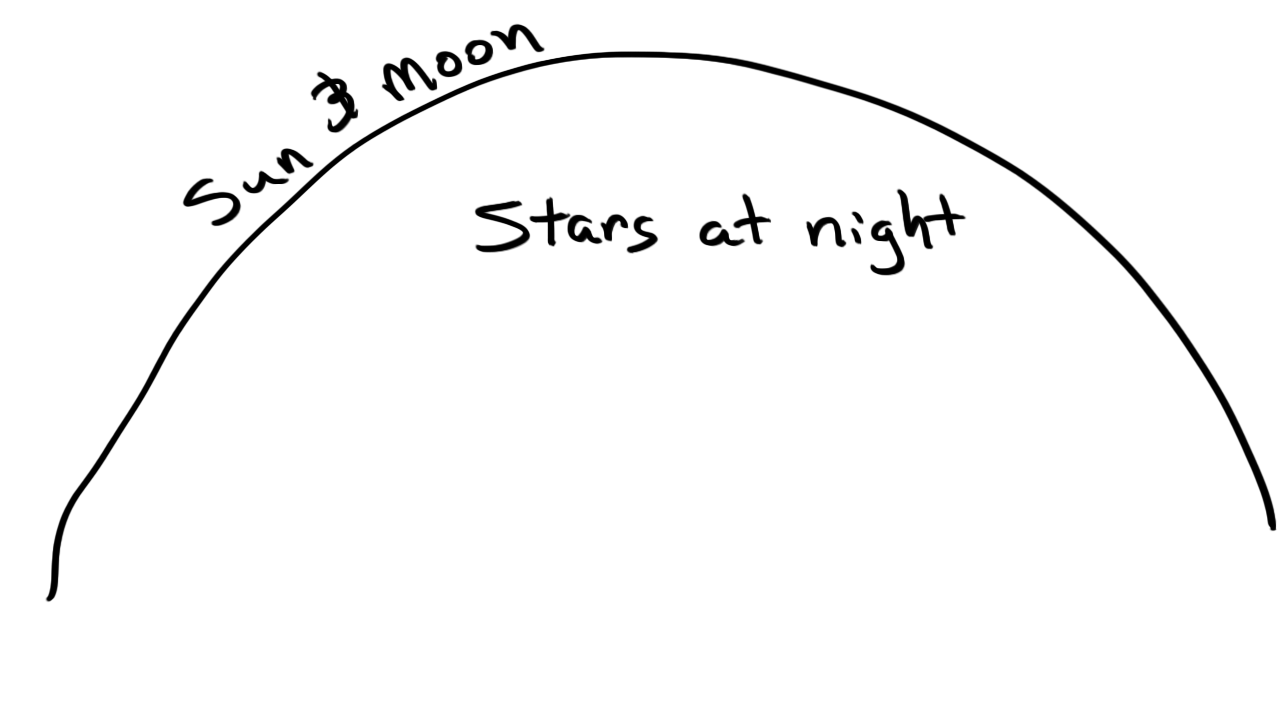 Sun & Moon
Stars at night